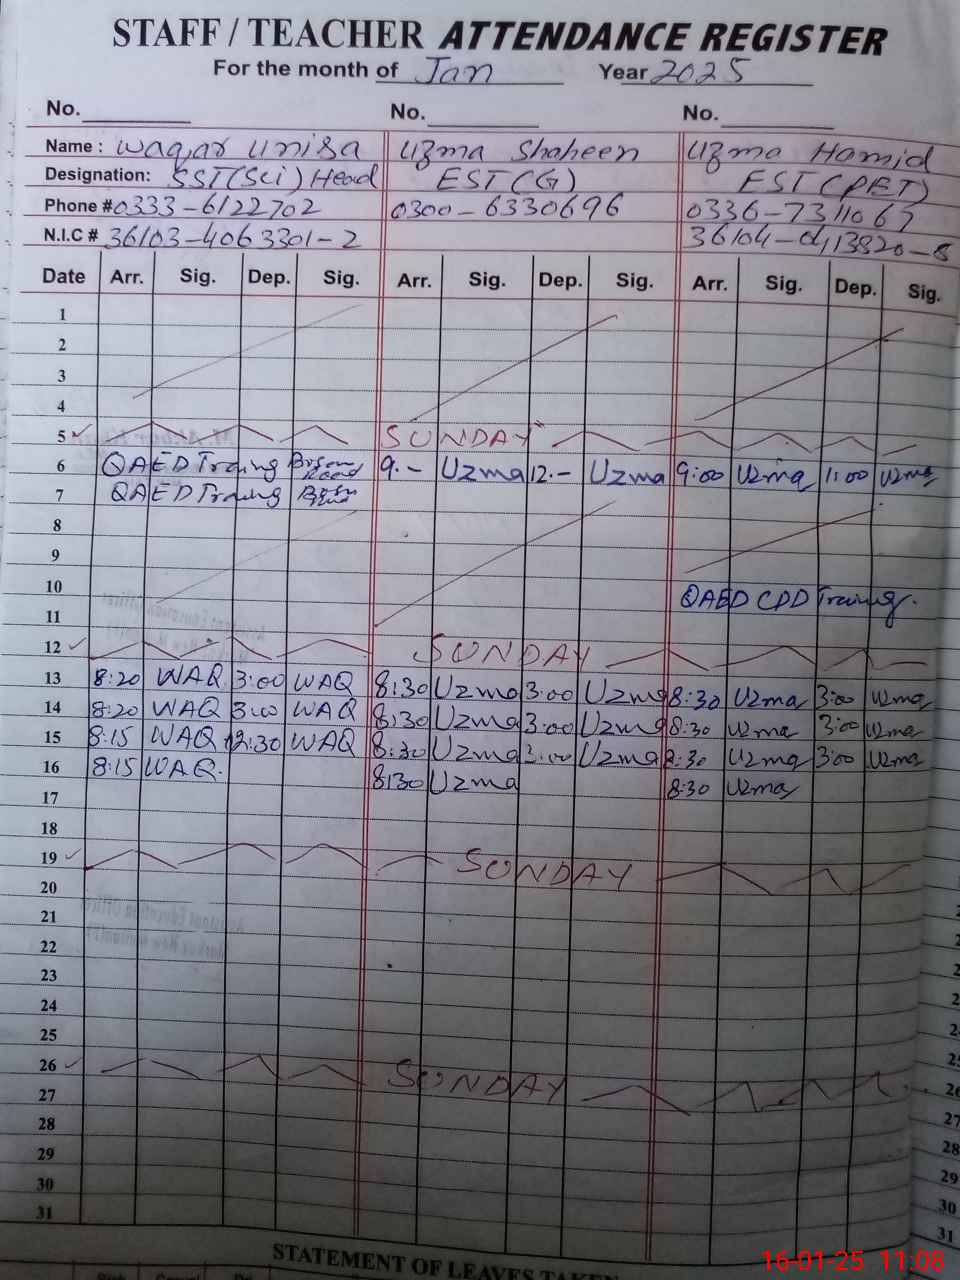 STAFF / TEACHER ATTENDANCE REGISTER
For the month of Jan Year 2025
No. No. No.
Name : Waqar Unisa Uzma Shaheen Uzma Hamid
Designation: SST(Sci) Head EST(G) EST(PET)
Phone # 0333-6122702 0300-6330696 0336-7311067
N.I.C # 36103-4063301-2 36104-0413820-8
Date Arr. Sig. Dep. Sig. Arr. Sig. Dep. Sig. Arr. Sig. Dep. Sig.
1
2
3
4
5 SUNDAY
6 QAED Traing 9.- Uzma 12.- Uzma 9:00 Uzma 11:00 Uzma
7 QAED Traing
8
9
10 QAED CPD Traning.
11
12 SUNDAY
13 8:20 WAQ 3:00 WAQ 8:30 Uzma 3:00 Uzma 8:30 Uzma 3:00 Uzma
14 8:20 WAQ 3:00 WAQ 8:30 Uzma 3:00 Uzma 8:30 Uzma 3:00 Uzma
15 8:15 WAQ :30 WAQ 8:30 Uzma 3:00 Uzma 8:30 Uzma 3:00 Uzma
16 8:15 WAQ. 8:30 Uzma 8:30 Uzma
17
18
19 SUNDAY
20
21
22
23
24
25
26 SUNDAY
27
28
29
30
31
STATEMENT OF LEAVES TAKEN
16-01-25 11:08